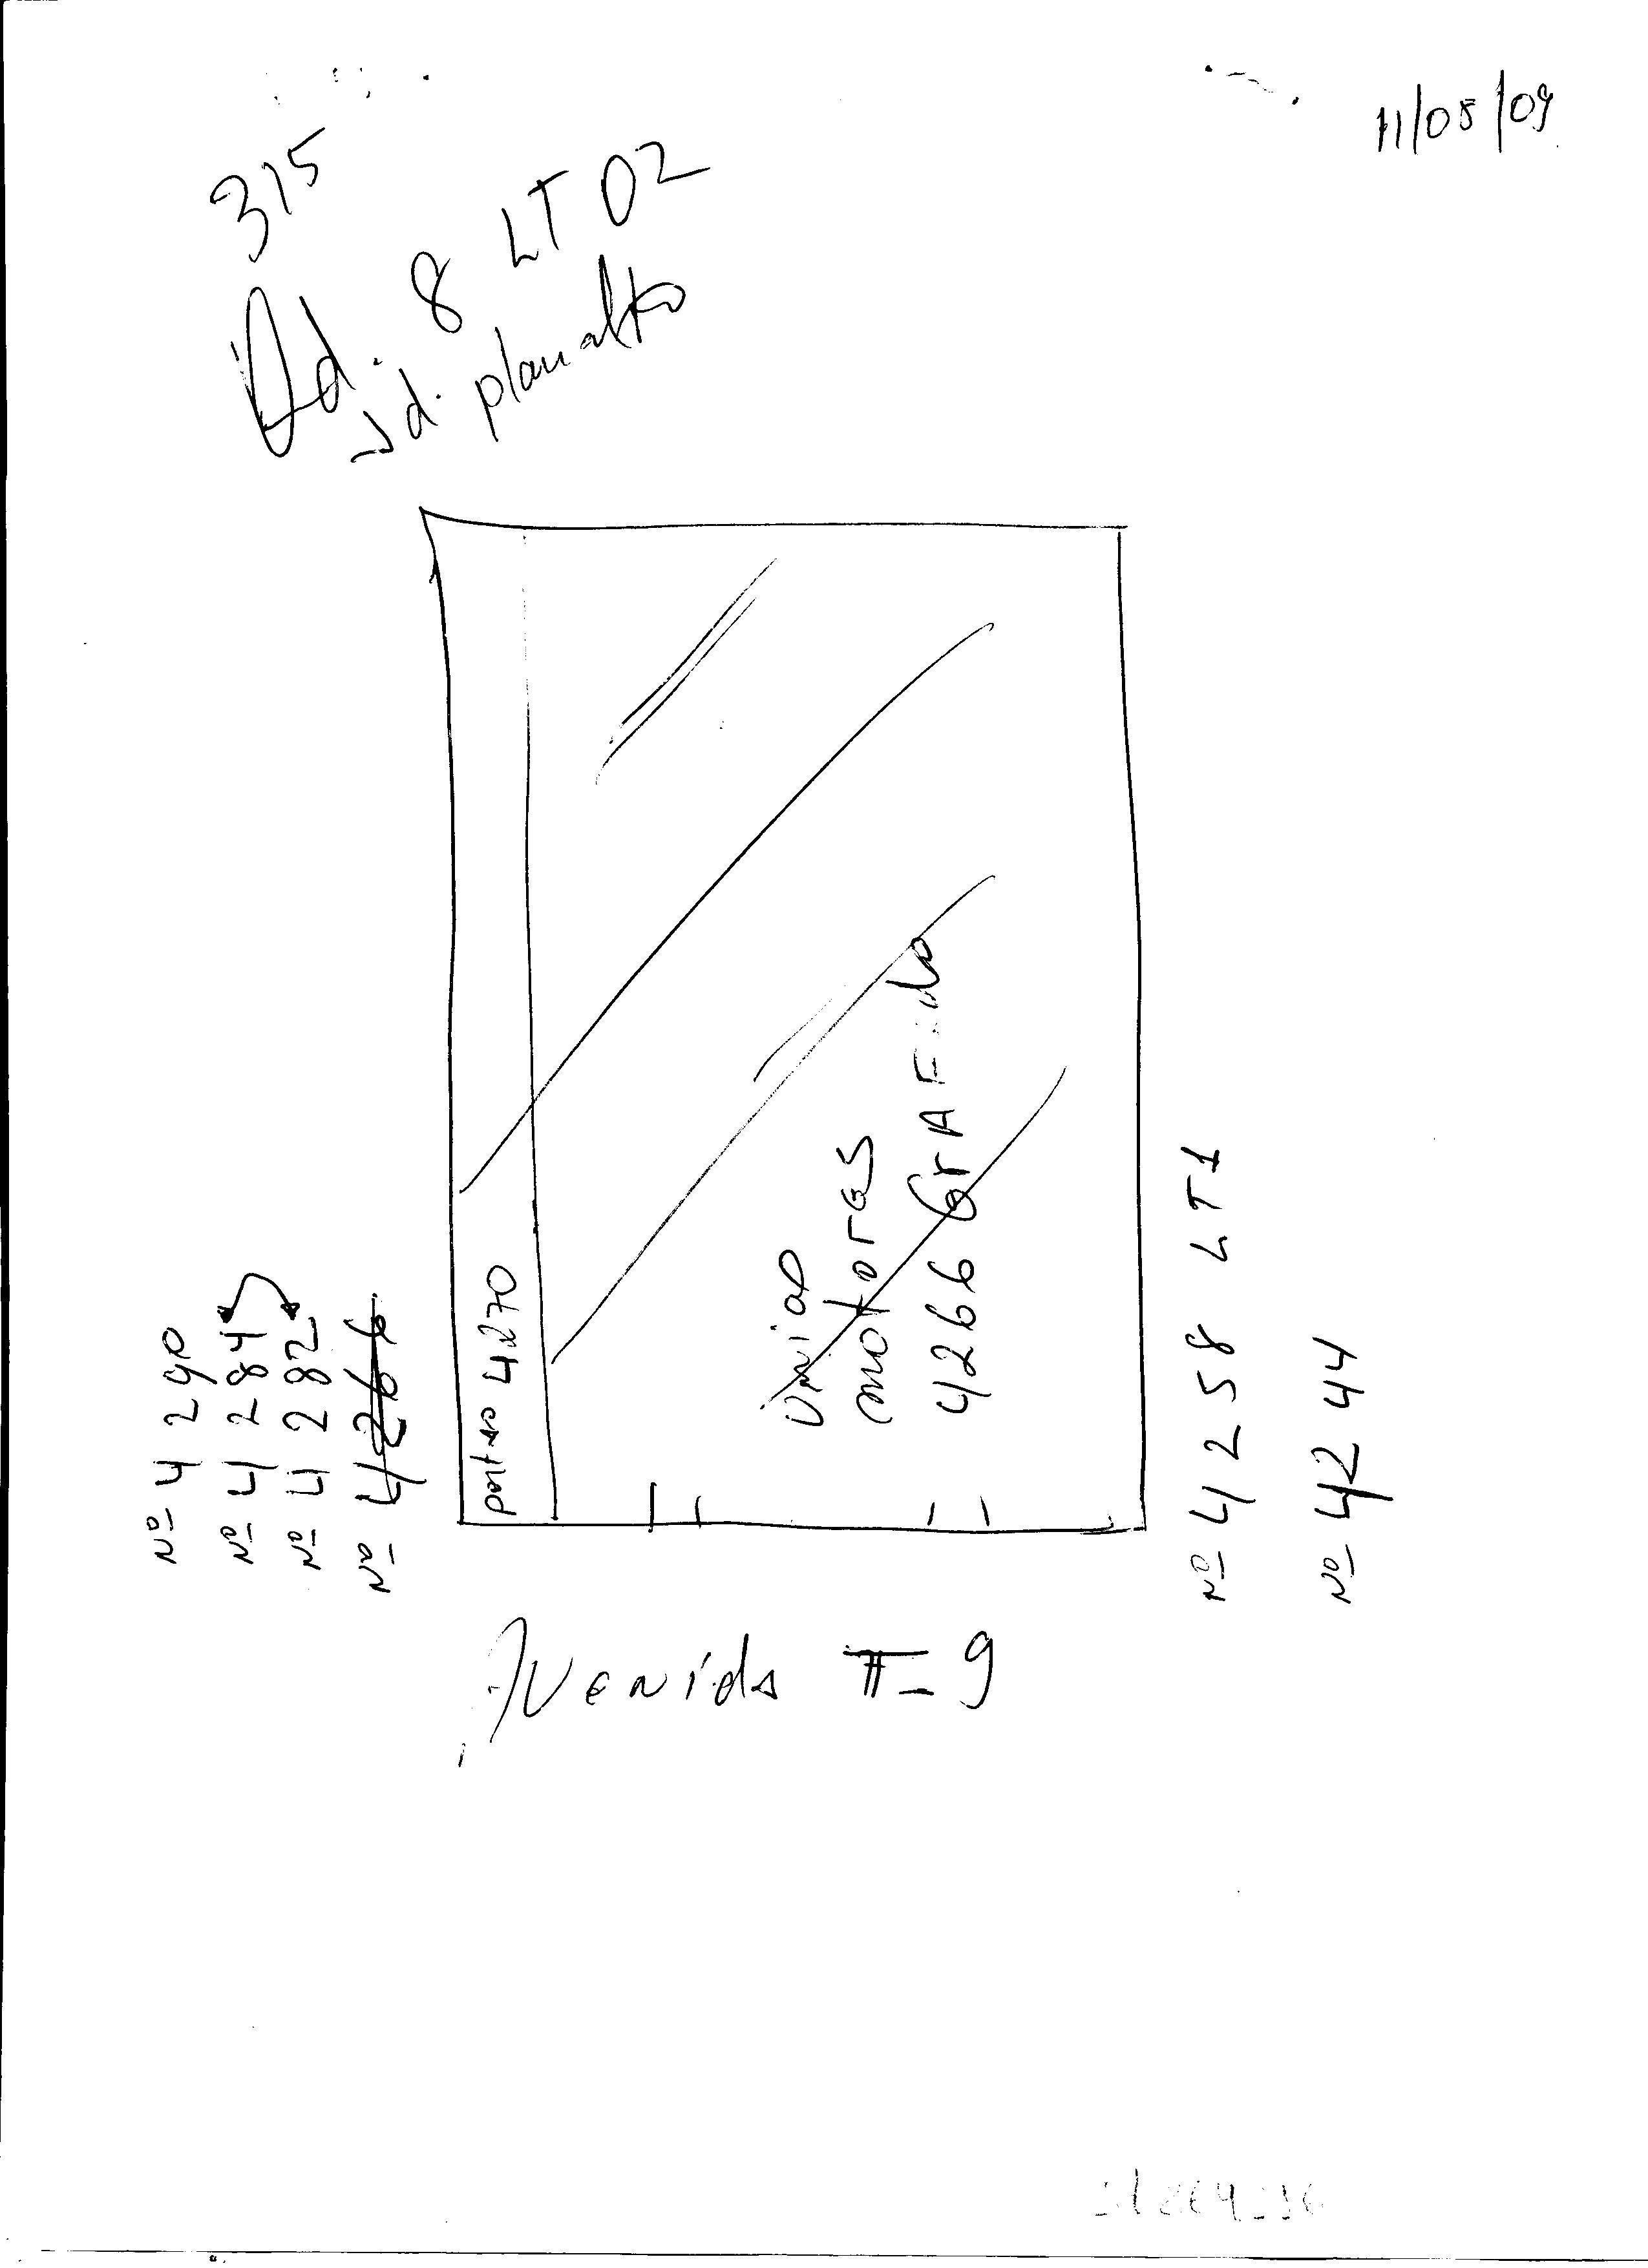 11/05/09
315
Qd. 8 LT 02
Jd. planalto
Nº 4290
Nº 4284
Nº 4282
Nº 4266
portão 4270
motores
4266 GrAFado
Nº 4258 LT1
Nº 4244
Avenida T-9